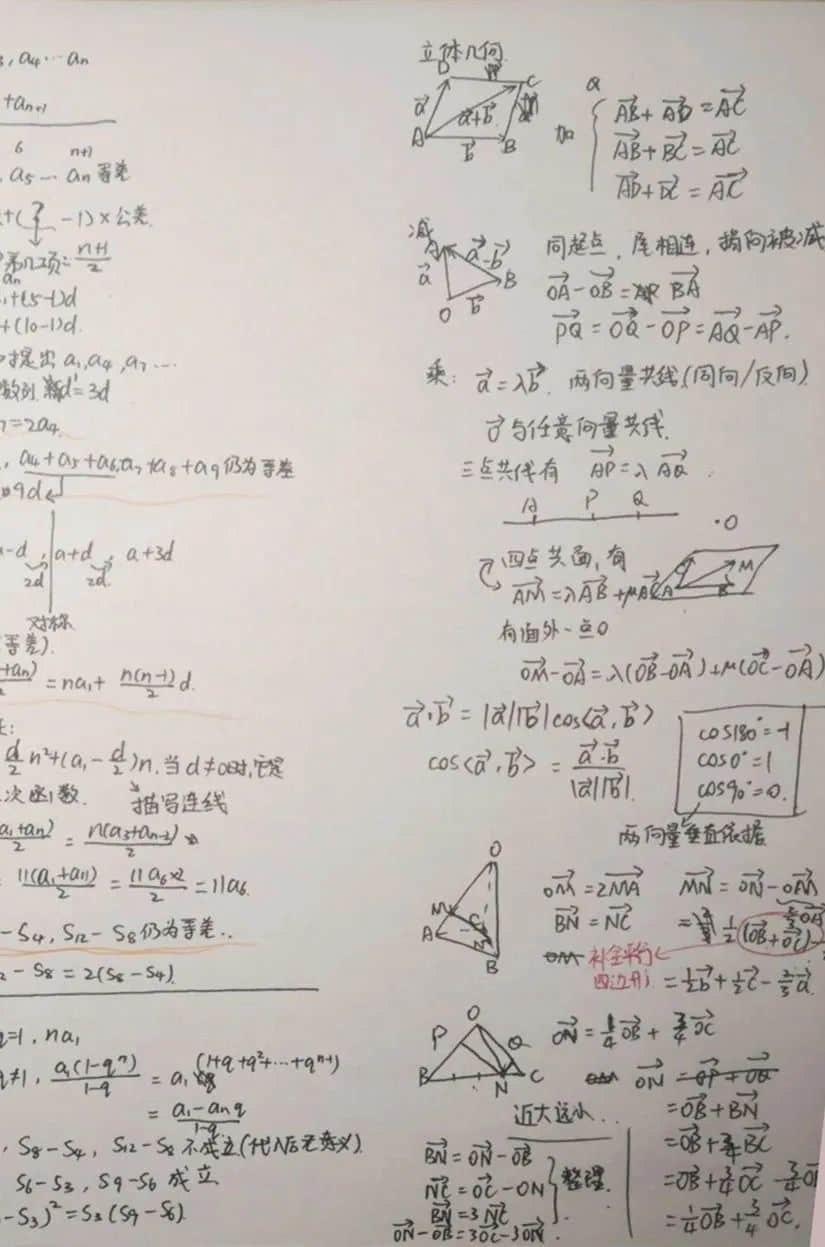 , a₄ ⋯ aₙ
+aₙ₊₁
6 n+1
, a₅ ⋯ aₙ 等差
-1)×公差.
第几项=(n+1)/2
+(5-1)d
+(10-1)d.
提出 a₁,a₄,a₇ ⋯
数列 新d'=3d
=2a₄.
, a₄+a₅+a₆,a₇+a₈+a₉ 仍为等差
9d
-d, a+d, a+3d
2d 2d
对称
(等差).
+aₙ)/2 = na₁ + n(n-1)/2 d.
:
d/2 n²+(a₁-d/2)n. 当d≠0时,它是
次函数. 描写连线
(a₁+aₙ)/2 = n(a₃+aₙ₋₂)/2
11(a₁+a₁₁)/2 = 11a₆×2/2 = 11a₆.
-S₄, S₁₂-S₈ 仍为等差..
-S₈=2(S₈-S₄).
q=1, na₁
q≠1, a₁(1-qⁿ)/(1-q) = a₁(1+q+q²+⋯+qⁿ⁺¹)
= (a₁-aₙq)/(1-q)
, S₈-S₄, S₁₂-S₈ 不成立(代入后无意义).
S₆-S₃, S₉-S₆ 成立
-S₃)²=S₃(S₉-S₆).
立体几何
D C
a⃗ a⃗+b⃗
A b⃗ B
加
AB⃗+AD⃗=AC⃗
AB⃗+BC⃗=AC⃗
AD⃗+DC⃗=AC⃗
减 同起点, 尾相连, 指向被减
A a⃗-b⃗
a⃗ B
O b⃗
OA⃗-OB⃗=BA⃗
PQ⃗=OQ⃗-OP⃗=AQ⃗-AP⃗.
乘: a⃗=λb⃗. 两向量共线(同向/反向)
0⃗与任意向量共线.
三点共线有 AP⃗=λAQ⃗.
A P Q
·O
四点共面, 有
AM⃗=λAB⃗+μAC⃗
A B M
有面外一点O
OM⃗-OA⃗=λ(OB⃗-OA⃗)+μ(OC⃗-OA⃗)
a⃗·b⃗=|a⃗||b⃗|cos⟨a⃗,b⃗⟩
cos⟨a⃗,b⃗⟩ = a⃗·b⃗/|a⃗||b⃗|.
cos180°=-1
cos0°=1
cos90°=0.
两向量垂直依据
O
M
A C
N
B
OM⃗=2MA⃗ MN⃗=ON⃗-OM⃗
BN⃗=NC⃗ =1/2(OB⃗+OC⃗)- 2/3OA⃗
补全平行
四边形
=1/2b⃗+1/2c⃗-2/3a⃗.
O
P Q
B N C
ON⃗=1/4OB⃗+3/4OC⃗
近大远小..
ON⃗=OP⃗+OQ⃗
=OB⃗+BN⃗
=OB⃗+3/4BC⃗
=OB⃗+3/4OC⃗-3/4OB
=1/4OB⃗+3/4OC⃗.
BN⃗=ON⃗-OB⃗
NC⃗=OC⃗-ON
BN⃗=3NC⃗
ON⃗-OB⃗=3OC⃗-3ON⃗.
整理.